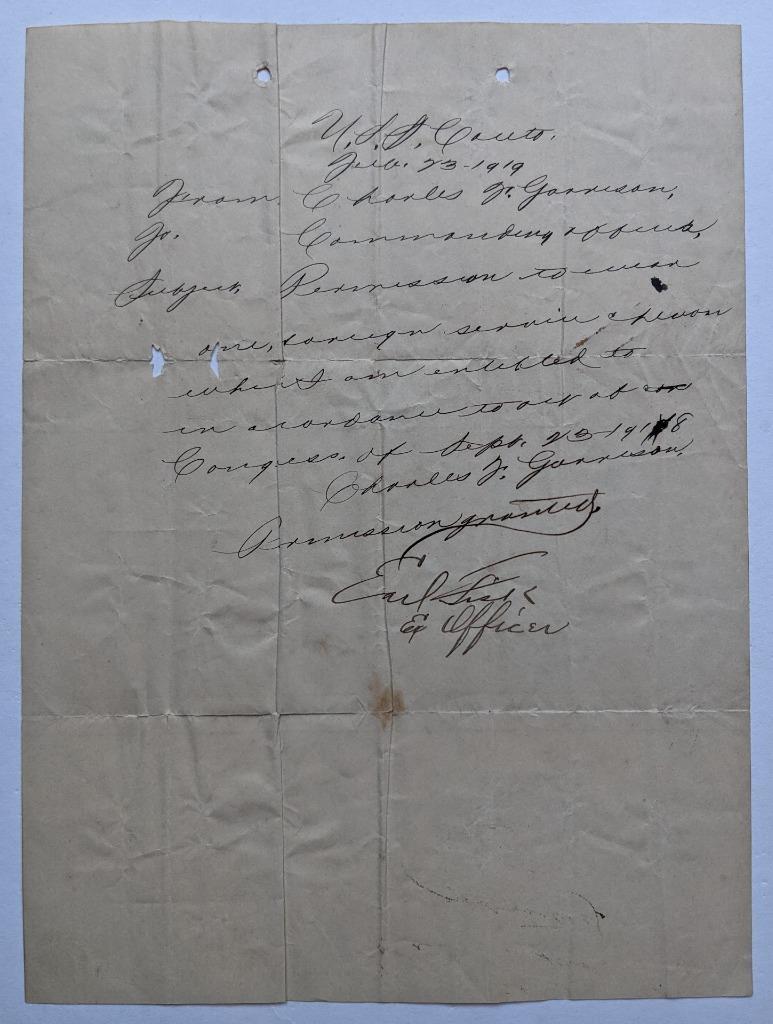 U.S.S. Couto.
Feb. 23-1919
From. Charles F. Garrison,
To. Commanding officer,
Subject, Permission to wear
one, foreign service chevon
which I am entitled to
in acordance to act of
Congess. of Sept. 23-1918
Charles F. Garrison.
Permission granted.
Earl Fisk
Ex Officer